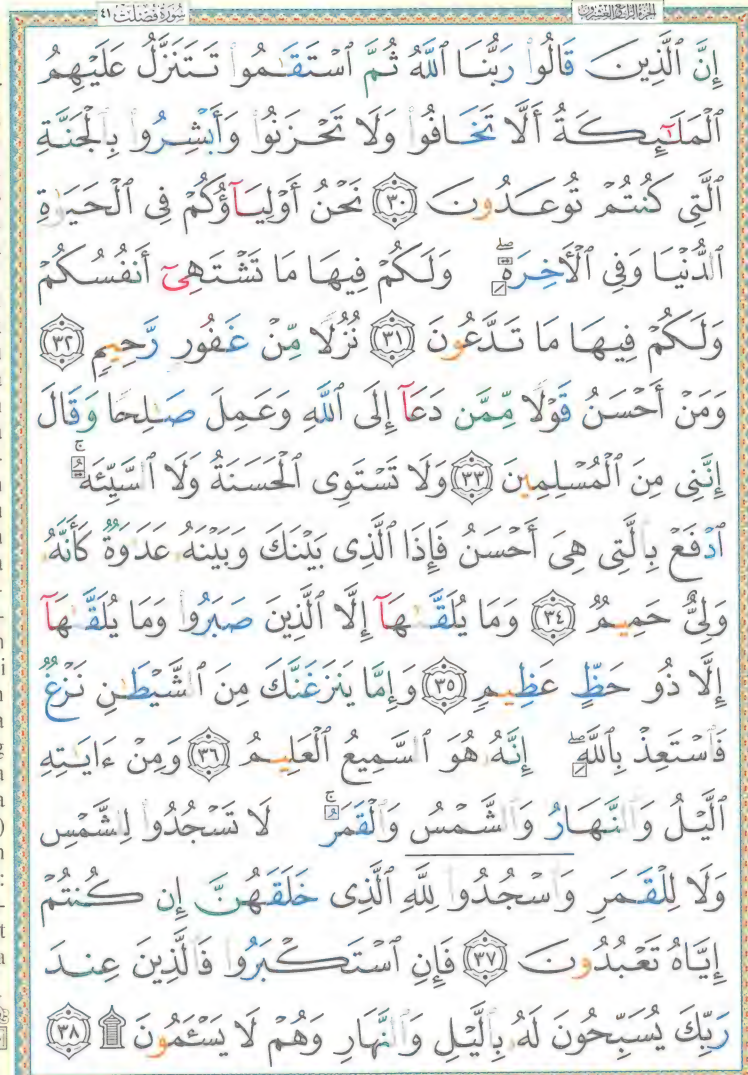 سُورَةُ فُصِّلَتْ ٤١
الجزء الرابع والعشرون
إِنَّ ٱلَّذِينَ قَالُوا۟ رَبُّنَا ٱللَّهُ ثُمَّ ٱسْتَقَـٰمُوا۟ تَتَنَزَّلُ عَلَيْهِمُ
ٱلْمَلَـٰٓئِكَةُ أَلَّا تَخَافُوا۟ وَلَا تَحْزَنُوا۟ وَأَبْشِرُوا۟ بِٱلْجَنَّةِ
ٱلَّتِى كُنتُمْ تُوعَدُونَ ٣٠ نَحْنُ أَوْلِيَآؤُكُمْ فِى ٱلْحَيَوٰةِ
ٱلدُّنْيَا وَفِى ٱلْأَخِرَةِ ۖ وَلَكُمْ فِيهَا مَا تَشْتَهِىٓ أَنفُسُكُمْ
وَلَكُمْ فِيهَا مَا تَدَّعُونَ ٣١ نُزُلًا مِّنْ غَفُورٍ رَّحِيمٍ ٣٢
وَمَنْ أَحْسَنُ قَوْلًا مِّمَّن دَعَآ إِلَى ٱللَّهِ وَعَمِلَ صَـٰلِحًا وَقَالَ
إِنَّنِى مِنَ ٱلْمُسْلِمِينَ ٣٣ وَلَا تَسْتَوِى ٱلْحَسَنَةُ وَلَا ٱلسَّيِّئَةُ ۚ
ٱدْفَعْ بِٱلَّتِى هِىَ أَحْسَنُ فَإِذَا ٱلَّذِى بَيْنَكَ وَبَيْنَهُۥ عَدَٰوَةٌ كَأَنَّهُۥ
وَلِىٌّ حَمِيمٌ ٣٤ وَمَا يُلَقَّىٰهَآ إِلَّا ٱلَّذِينَ صَبَرُوا۟ وَمَا يُلَقَّىٰهَآ
إِلَّا ذُو حَظٍّ عَظِيمٍ ٣٥ وَإِمَّا يَنزَغَنَّكَ مِنَ ٱلشَّيْطَـٰنِ نَزْغٌ
فَٱسْتَعِذْ بِٱللَّهِ ۖ إِنَّهُۥ هُوَ ٱلسَّمِيعُ ٱلْعَلِيمُ ٣٦ وَمِنْ ءَايَـٰتِهِ
ٱلَّيْلُ وَٱلنَّهَارُ وَٱلشَّمْسُ وَٱلْقَمَرُ ۚ لَا تَسْجُدُوا۟ لِلشَّمْسِ
وَلَا لِلْقَمَرِ وَٱسْجُدُوا۟ لِلَّهِ ٱلَّذِى خَلَقَهُنَّ إِن كُنتُمْ
إِيَّاهُ تَعْبُدُونَ ٣٧ فَإِنِ ٱسْتَكْبَرُوا۟ فَٱلَّذِينَ عِندَ
رَبِّكَ يُسَبِّحُونَ لَهُۥ بِٱلَّيْلِ وَٱلنَّهَارِ وَهُمْ لَا يَسْـَٔمُونَ ۩ ٣٨